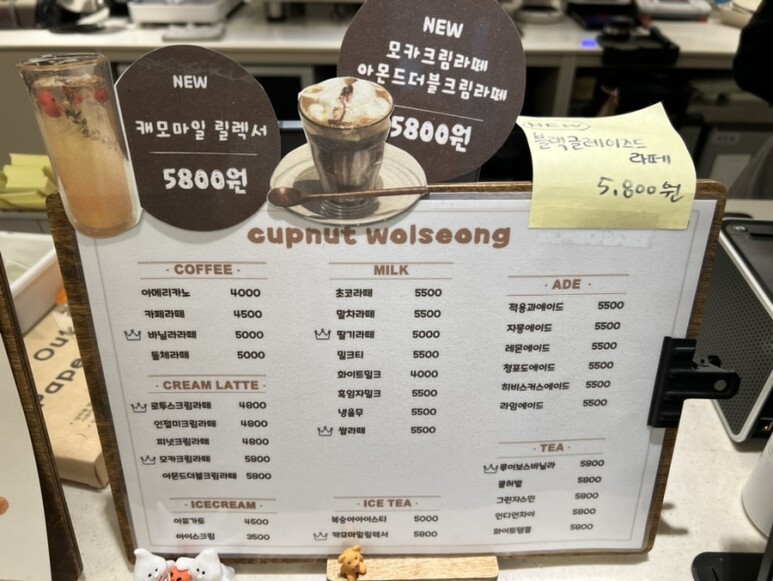 NEW
캐모마일 릴렉서
5800원
NEW
모카크림라떼
아몬드더블크림라떼
5800원
(NEW)
블랙글레이즈드
라떼
5,800원
cupnut wolseong
· COFFEE ·
아메리카노 4000
카페라떼 4500
바닐라라떼 5000
돌체라떼 5000
· CREAM LATTE ·
로투스크림라떼 4800
인절미크림라떼 4800
피넛크림라떼 4800
모카크림라떼 5800
아몬드더블크림라떼 5800
· ICECREAM ·
아포가토 4500
아이스크림 3500
MILK
초코라떼 5500
말차라떼 5500
딸기라떼 5000
밀크티 5500
화이트밀크 4000
흑임자밀크 5500
냉율무 5500
쌀라떼 5500
· ICE TEA ·
복숭아아이스티 5000
캐모마일릴렉서 5800
· ADE ·
적용과에이드 5500
자몽에이드 5500
레몬에이드 5500
청포도에이드 5500
히비스커스에이드 5500
라임에이드 5500
· TEA ·
루이보스바닐라 5800
쿨허벌 5800
그린자스민 5800
인디안차이 5800
화이트템플 5800